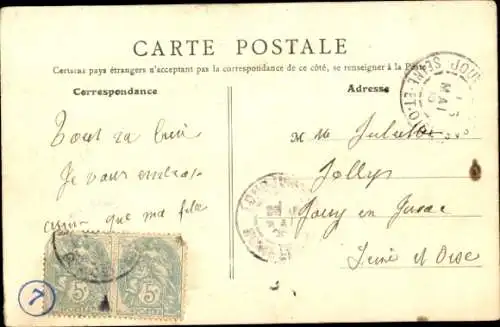 CARTE POSTALE
Certains pays étrangers n'acceptant pas la correspondance de ce côté, se renseigner à la Poste
Correspondance
Adresse
Tout va bien
Je vous embrasse
que ma
Mme Juliette
Jollys
Jouy en Josas
Seine et Oise
SEINE-ET-OISE
MAI
5
5
7